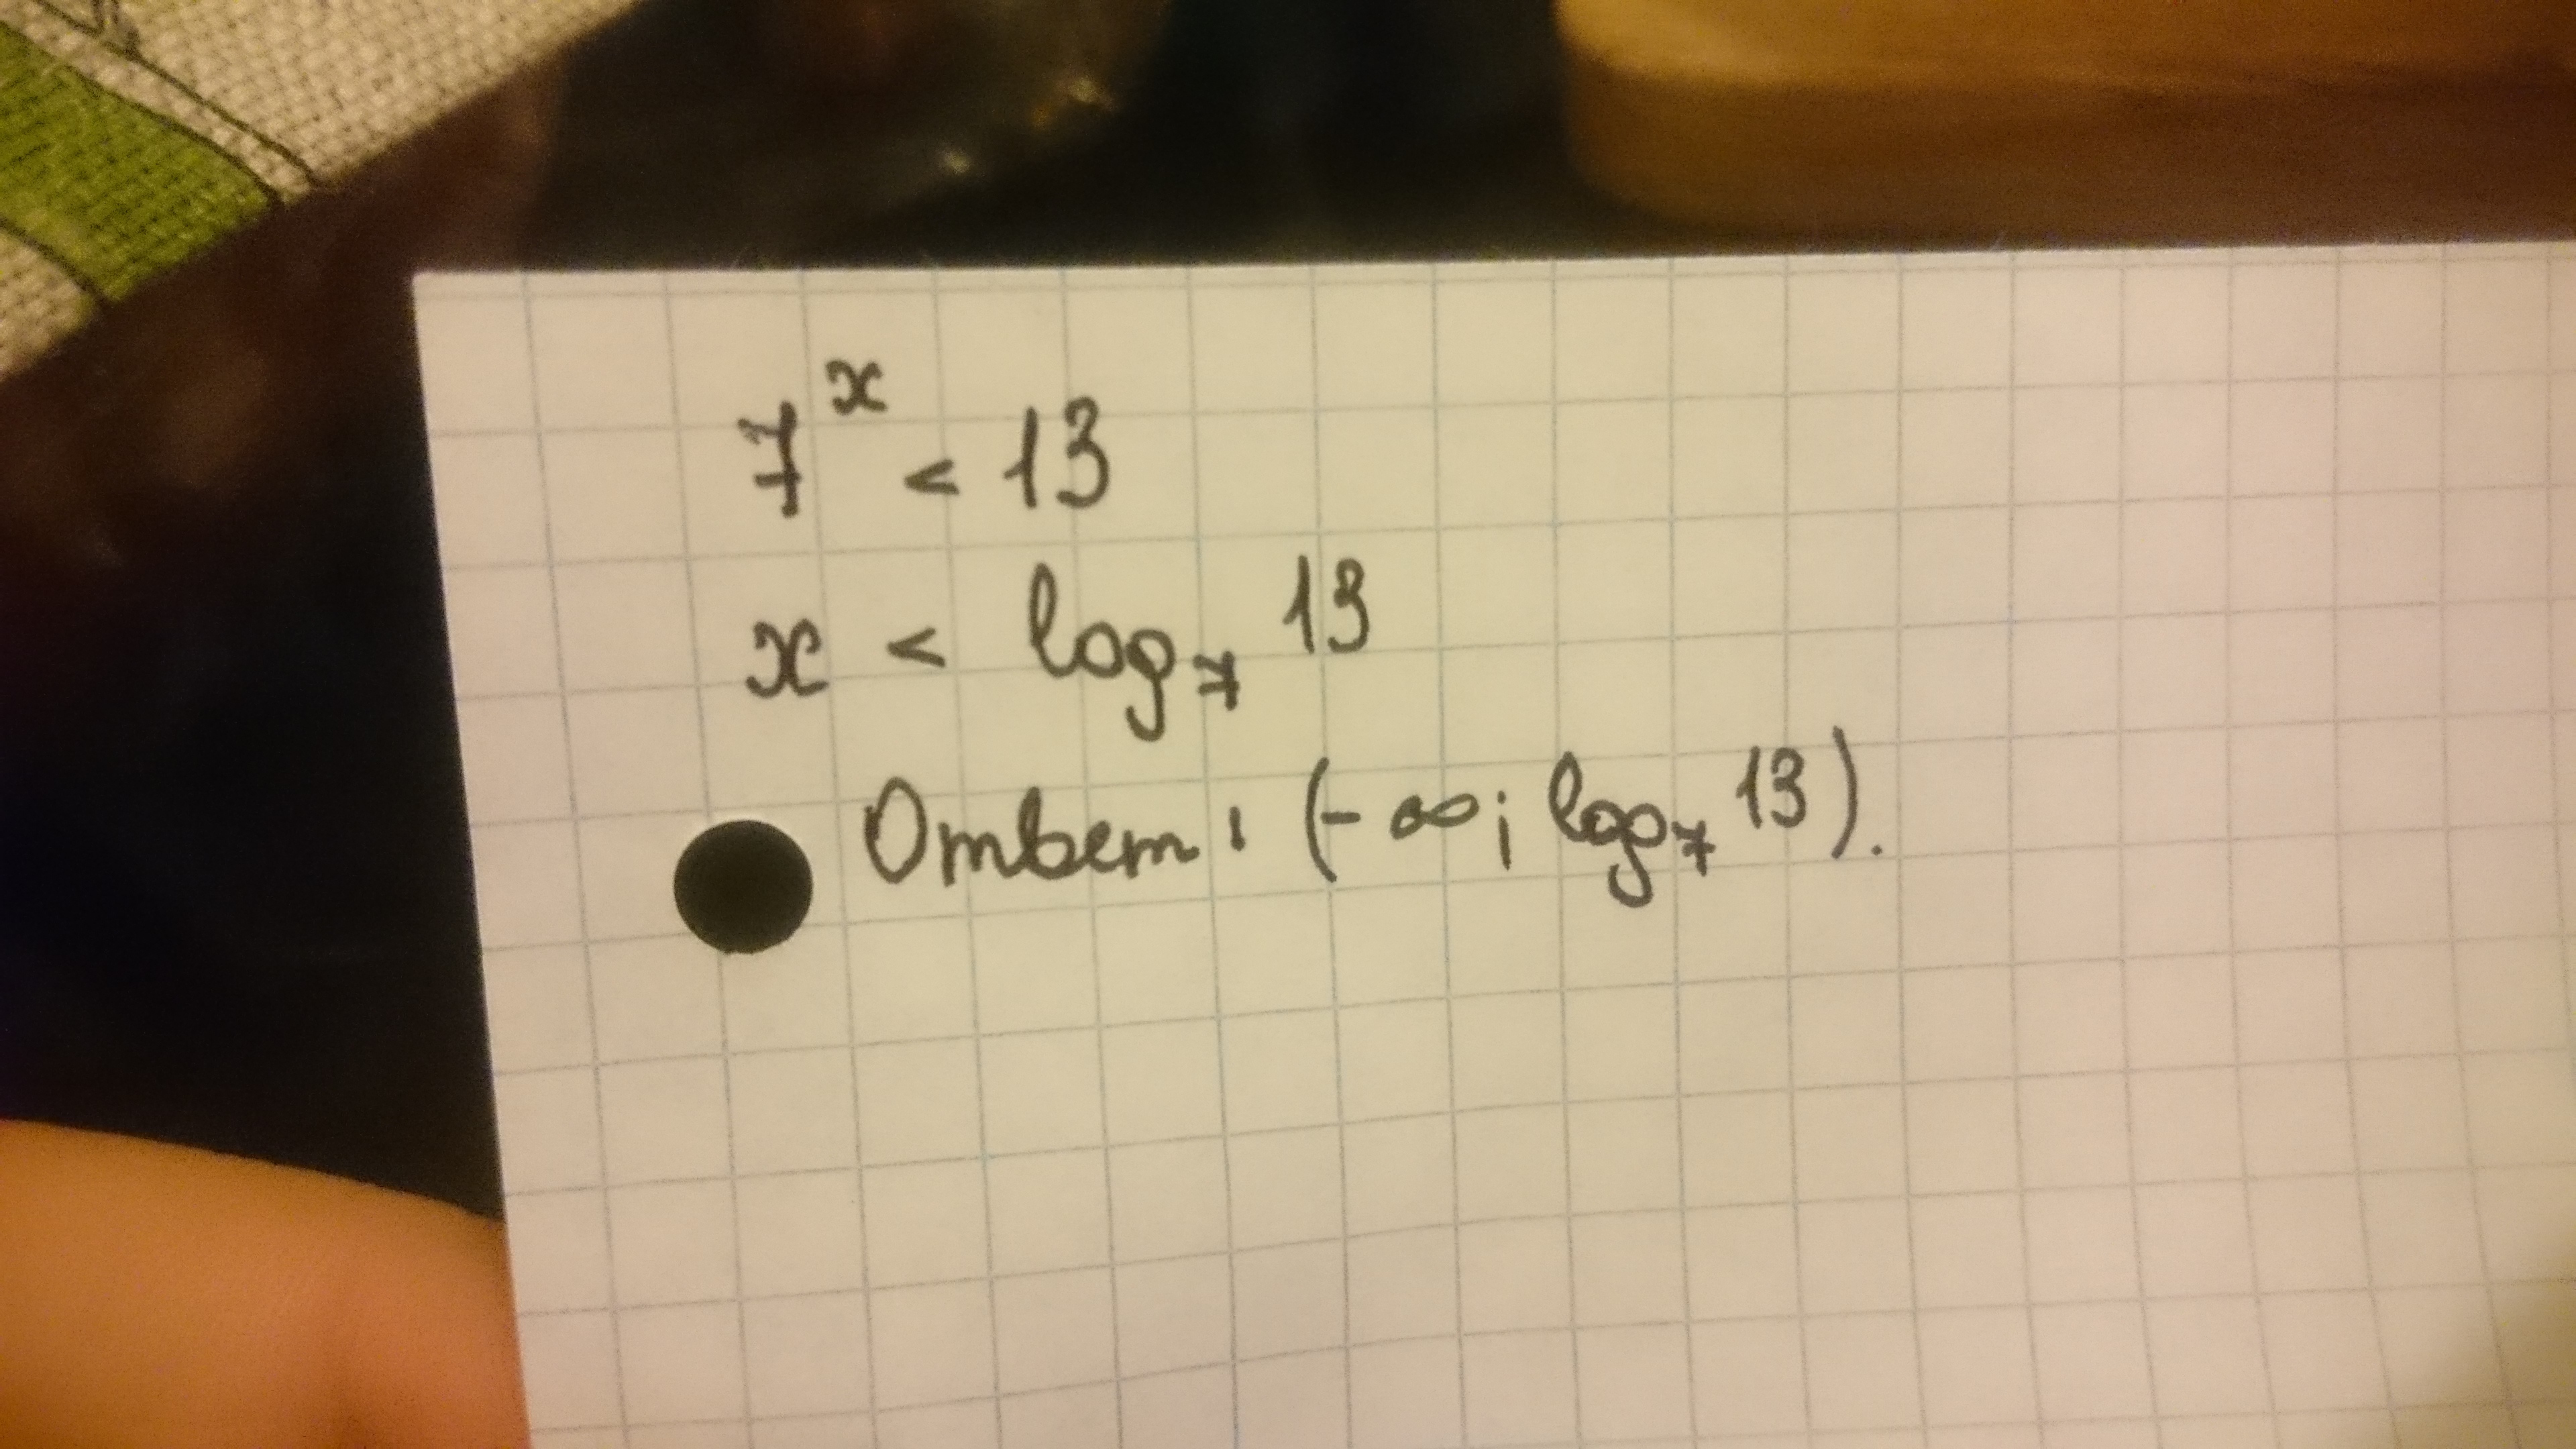 7ˣ < 13
x < log₇ 13
Ответ: (-∞; log₇ 13).